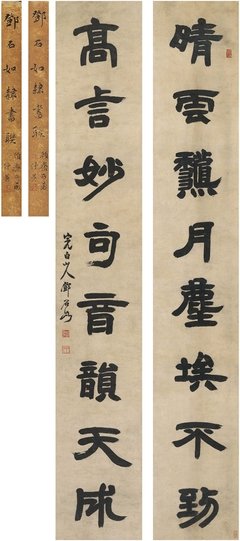 晴雲龝月塵埃不到
高言妙句音韻天成
完白山人鄧石如
鄧石如隸書聯
鄧石如隸書聯